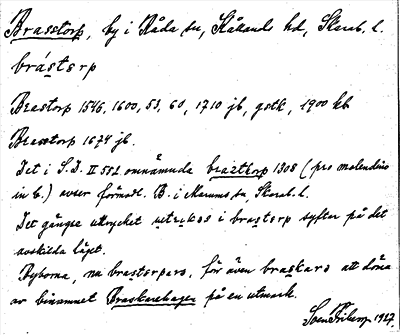 Brasstorp, by i Råda sn, Kållands hd, Skarab. l.
brástɛrp
Brastorp 1546, 1600, 53, 60, 1710 jb, gstk, 1900 kb
Brasstorp 1674 jb.
Det i S.D. II 552 omnämnda braztthorp 1308 (pro molendino
in b.) avser förmodl. B. i Marums sn, Skarab. l.
Det gångse uttrycket i brastorp syftar på det
avskilda läget.
Byborna, na brastarpara, för även braskara att döma
av binamnet Braskarehagen på en utmark.
1927.